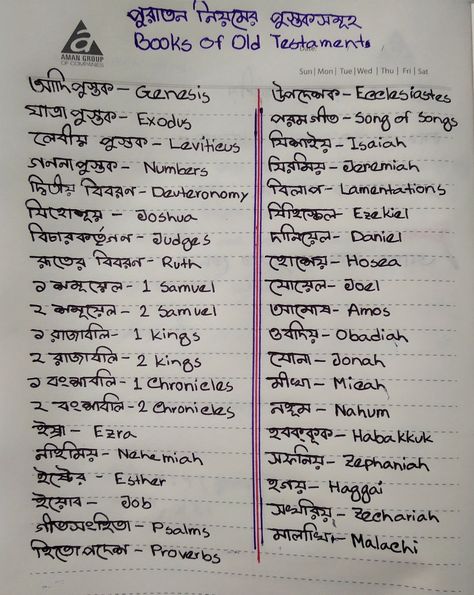 পুরাতন নিয়মের পুস্তকসমূহ
Books of Old Testaments
AMAN GROUP
OF COMPANIES
Sun | Mon | Tue | Wed | Thu | Fri | Sat
আদিপুস্তক – Genesis
যাত্রাপুস্তক – Exodus
লেবীয় পুস্তক – Leviticus
গননাপুস্তক – Numbers
দ্বিতীয় বিবরন – Deuteronomy
যিহোশূয় – Joshua
বিচারকর্ত্তৃগন – Judges
রূতের বিবরন – Ruth
১ শমূয়েল – 1 Samuel
২ শমূয়েল – 2 Samuel
১ রাজাবলি – 1 Kings
২ রাজাবলি – 2 Kings
১ বংশাবলি – 1 Chronicles
২ বংশাবলি – 2 Chronicles
ইষ্রা – Ezra
নহিমিয় – Nehemiah
ইষ্টের – Esther
ইয়োব – Job
গীতসংহিতা – Psalms
হিতোপদেশ – Proverbs
উপদেশক – Ecclesiastes
পরমগীত – Song of Songs
যিশাইয় – Isaiah
যিরমিয় – Jeremiah
বিলাপ – Lamentations
যিহিষ্কেল – Ezekiel
দানিয়েল – Daniel
হোশেয় – Hosea
যোয়েল – Joel
আমোষ – Amos
ওবদিয় – Obadiah
যোনা – Jonah
মীখা – Micah
নহূম – Nahum
হবক্‌কূক – Habakkuk
সফনিয় – Zephaniah
হগয় – Haggai
সখরিয় – Zechariah
মালাখি – Malachi